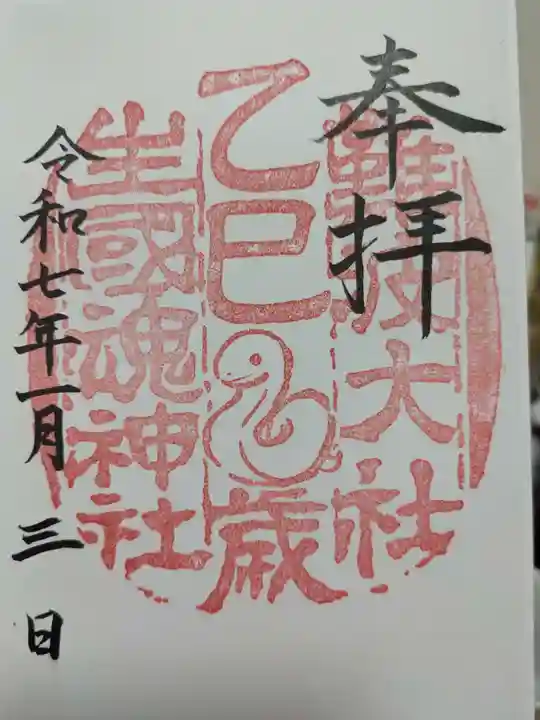 奉拝
難波大社
乙巳
歳
生國魂神社
令和七年一月三日